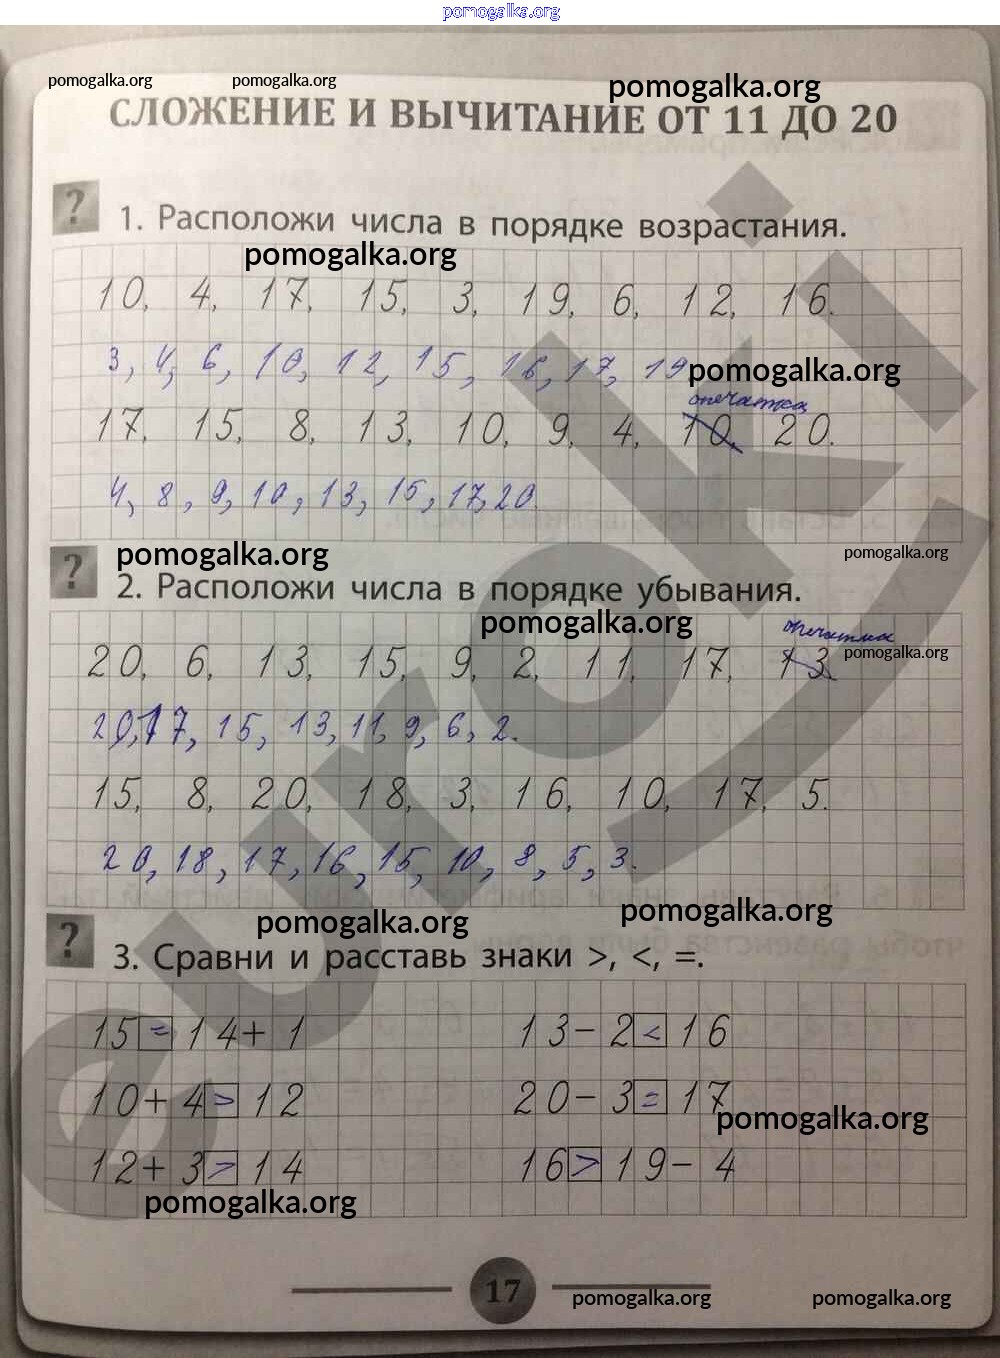 pomogalka.org
pomogalka.org pomogalka.org pomogalka.org
СЛОЖЕНИЕ И ВЫЧИТАНИЕ ОТ 11 ДО 20
? 1. Расположи числа в порядке возрастания.
pomogalka.org
10, 4, 17, 15, 3, 19, 6, 12, 16.
3, 4, 6, 10, 12, 15, 16, 17, 19
pomogalka.org
опечатка
17, 15, 8, 13, 10, 9, 4, 10, 20.
4, 8, 9, 10, 13, 15, 17, 20.
pomogalka.org pomogalka.org
? 2. Расположи числа в порядке убывания.
pomogalka.org
опечатка
20, 6, 13, 15, 9, 2, 11, 17, 13
pomogalka.org
20, 17, 15, 13, 11, 9, 6, 2.
15, 8, 20, 18, 3, 16, 10, 17, 5.
20, 18, 17, 16, 15, 10, 8, 5, 3.
pomogalka.org pomogalka.org
? 3. Сравни и расставь знаки >, <, =.
15 = 14 + 1 13 - 2 < 16
10 + 4 > 12 20 - 3 = 17
pomogalka.org
12 + 3 > 14 16 > 19 - 4
pomogalka.org
17
pomogalka.org pomogalka.org
euroki